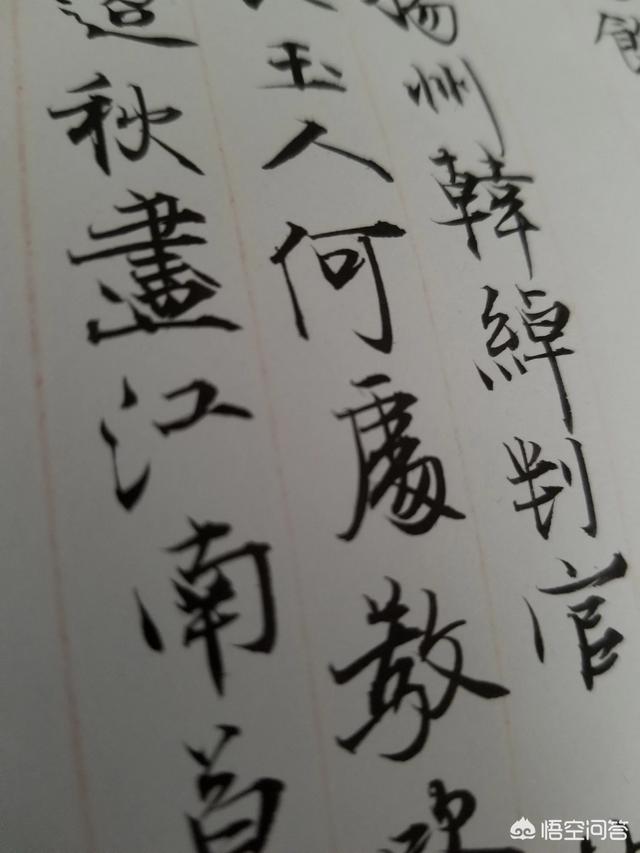 揚州韓綽判官
玉人何處教
秋盡江南
悟空问答